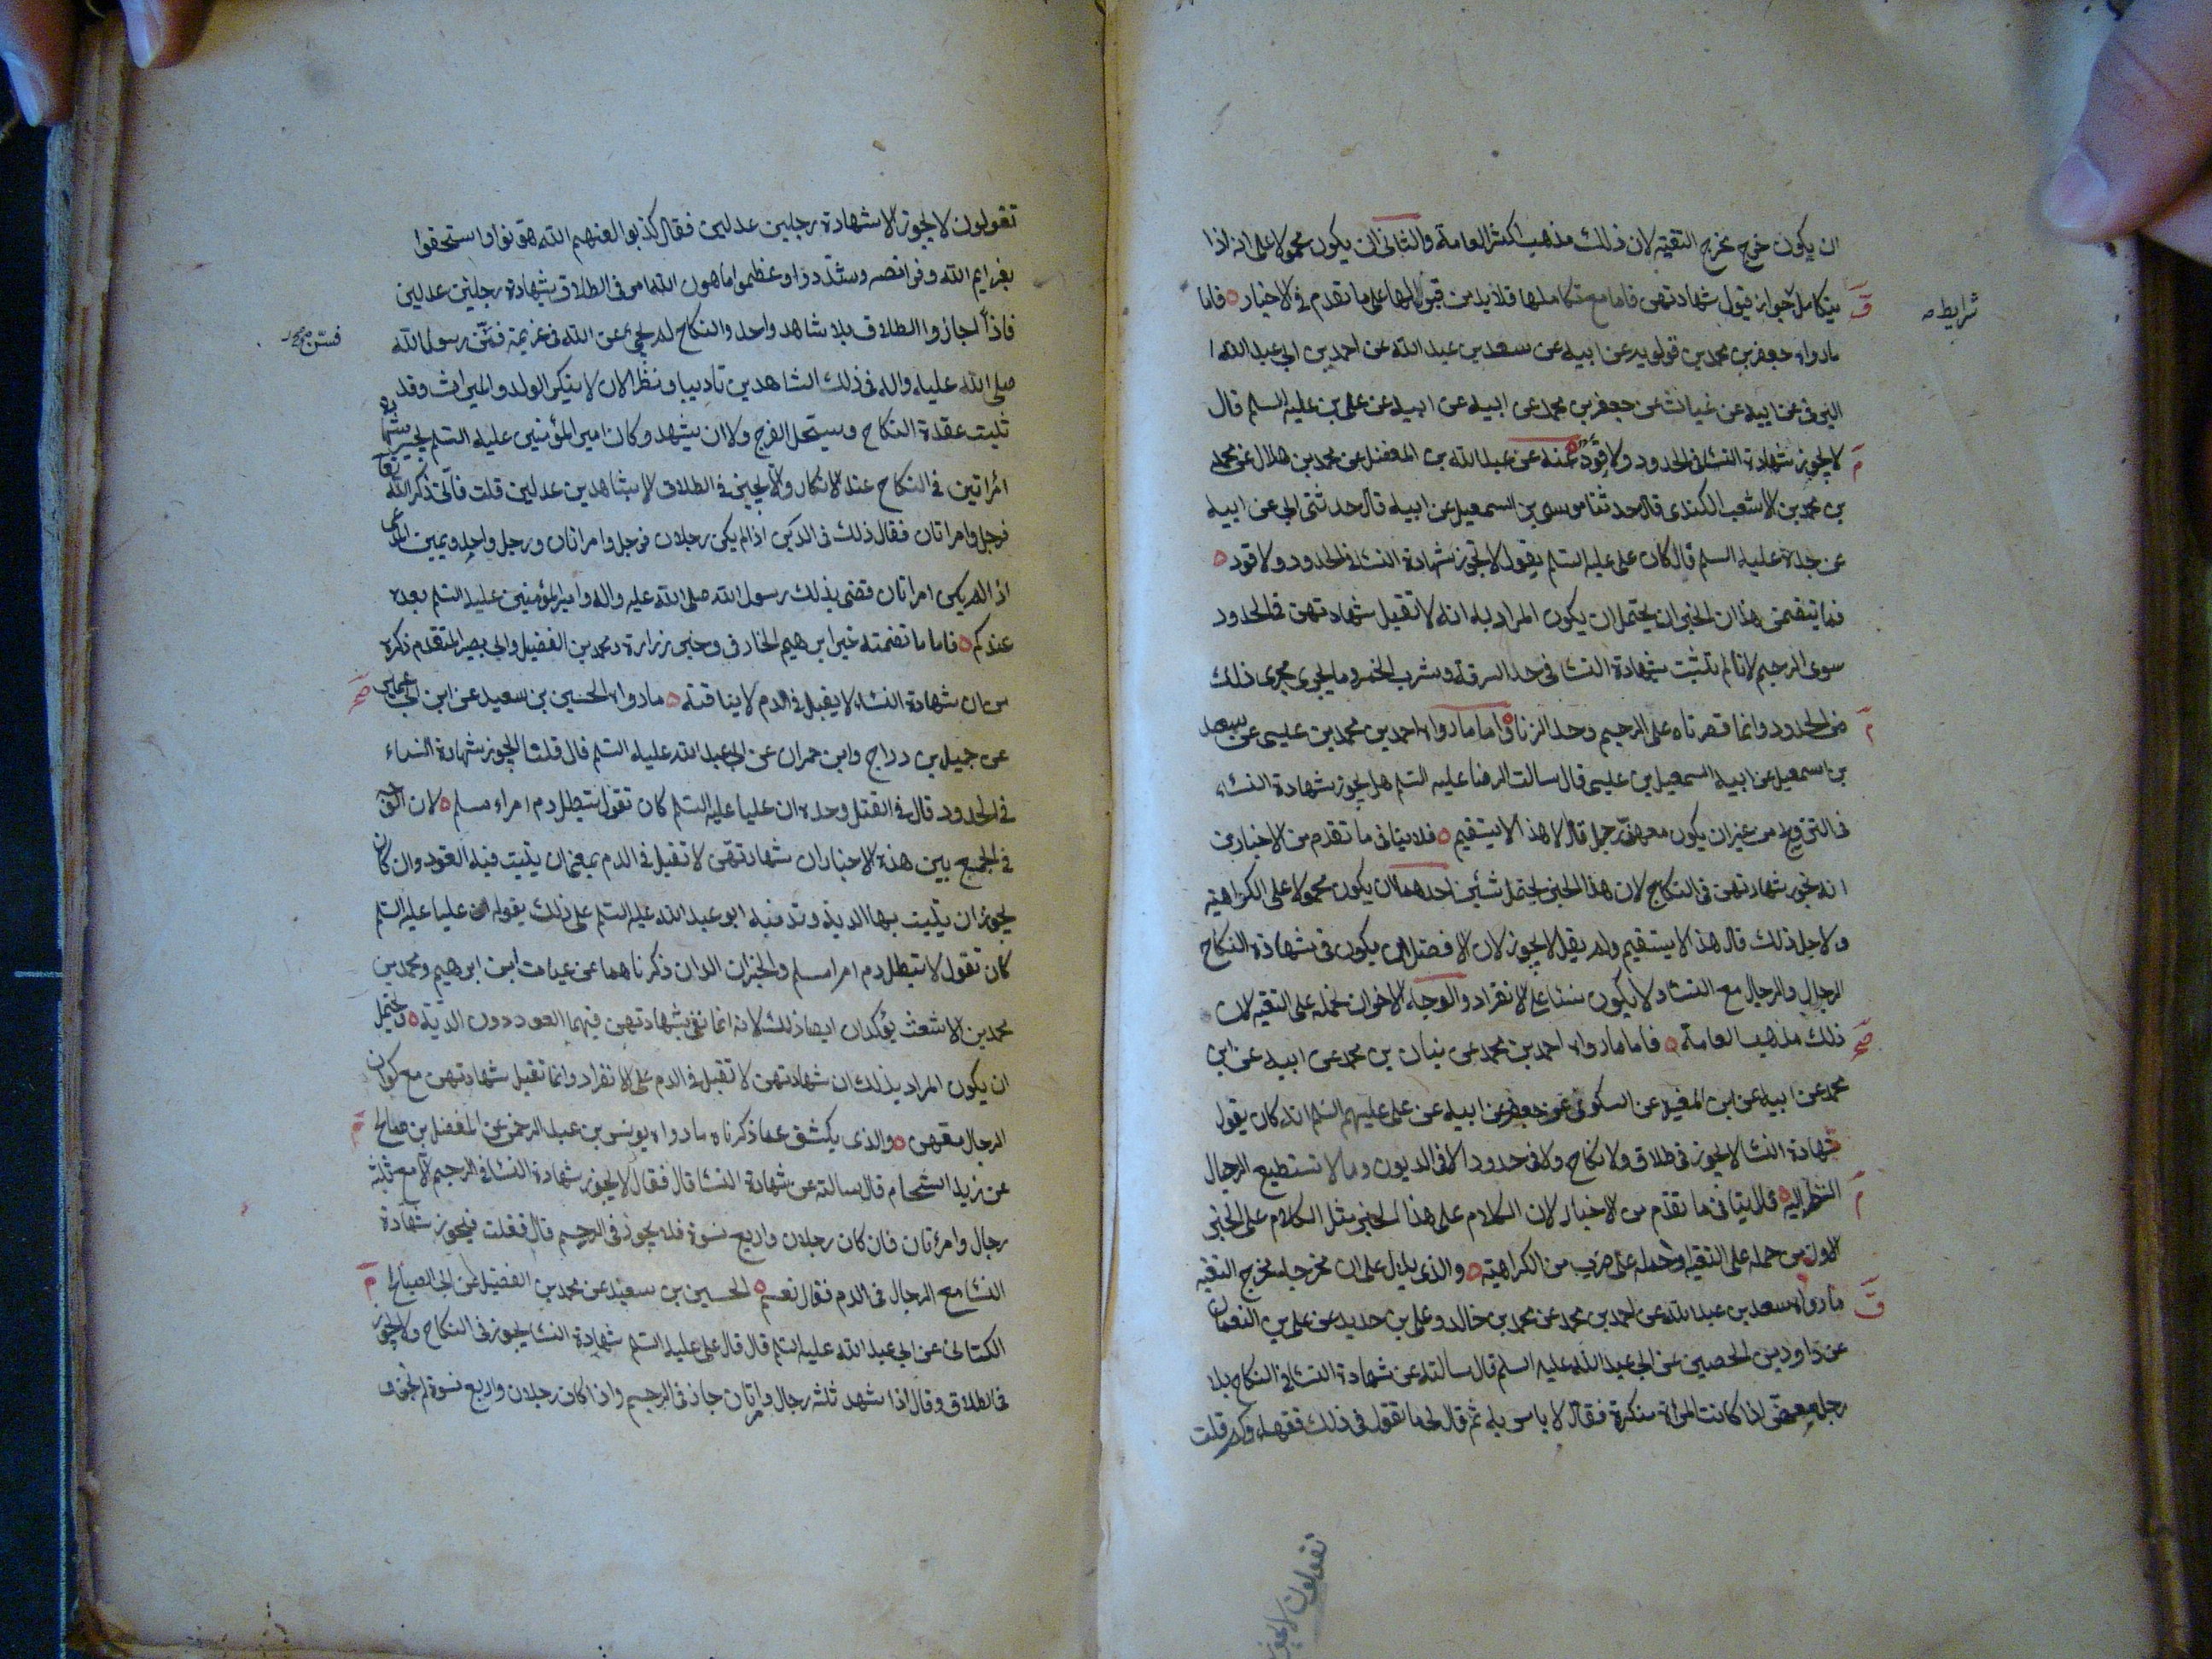 ان يكون خرج مخرج التقيه لان ذلك مذهب اكثر العامة والثانى ان يكون محمولا على انه اذا
يتكامل جواز قبول شهادتهن فاما مع تكاملها فلابد من قبولها على ما تقدم فى الاخبار فاما
شرايطه
مارواه جعفر بن محمد بن قولويه عن ابيه عن سعد بن عبد الله عن احمد بن ابى عبد الله
البرقى عن ابيه عن غياث عن جعفر بن محمد عن ابيه عن ابيه عن على بن عليه السلم قال
لا يجوز شهادة النسا فى الحدود ولا قود عنه عن عبد الله بن المفضل عن محمد بن هلال عن محمد
بن محمد بن الاشعب الكندى قال حدثنا موسى بن اسمعيل عن ابيه قال حدثنى ابى عن ابيه
عن جده عليه السلم قال كان على عليه السلم يقول لا تجوز شهادة النسا فى الحدود ولا قود
فما تيضمن هذان الخبران يحتمل ان يكون المراد به انه لا تقبل شهادتهن فى الحدود
سوى الرجيم لانا لم نثبت شهادة النسا فى حد السرقة وشرب الخمر وما يجرى مجرى ذلك
من الحدود وانما قصرناه على الرجيم وحد الزنا واما مارواه احمد بن محمد بن عيسى عن سعد
بن اسمعيل عن ابيه اسمعيل بن عليسى قال سالت الرضا عليه السلم هل يجوز شهادة النساء
فى التزويج من غير ان يكون معهن رجل قال لا هذا لا يستقيم فلا ينافى ما تقدم من الاخبار من
انه تجوز شهادتهن فى النكاح لان هذا الخبر يحتمل شئين احدهما ان يكون محمولا على الكراهيه
ولاجل ذلك قال هذا لا يستقيم ولم يقل لا يجوز لان الافضل ان يكون فى شهادة النكاح
الرجال والرجال مع النساء ولا يكون نساء على الانفراد والوجه الاخران نحمله على التقيه لان
ذلك مذهب العامة فاما مارواه احمد بن محمد عن بنان بن محمد عن ابيه عن ابن
محمد عن ابيه عن ابن المغيره عن السكونى عن جعفر عن ابيه عن على عليهم السلم انه كان يقول
شهادة النسا لا يجوز فى طلاق ولا نكاح ولا فى حدود الا فى الديون وما لا تستطيع الرجال
النظر اليه فلا ينافى ما تقدم من الاخبار لان الكلام على هذا الخبر مثل الكلام على الخبر
الاول من حمله على التقيه وحمله على ضرب من الكراهيته والذى يدل على ان مخرجها مخرج التقيه
مارواه سعد بن عبد الله عن احمد بن محمد عن محمد بن خالد وعلى بن حديد عن على بن النعمان
عن داود بن الحصين عن ابى عبد الله عليه السلم قال سالته عن شهادة النسا فى النكاح بلا
رجل معهن اذا كانت المراة منكرة فقال لا باس به ثم قال لى ما تقول فى ذلك فقهاءوكم قلت
تقولون لا يجوز
تقولون لا يجوز الا شهادة رجلين عدلين فقال كذبوا لعنهم الله هونوا واستخفوا
بغرايم الله وفرائضه وشددوا وعظموا ما هون الله امر فى الطلاق بشهادة رجلين عدلين
فاذا اجازوا الطلاق بلا شاهد واحد والنكاح لم يجئ عن الله فى عزيمة فسن رسول الله
صلى الله عليه واله فى ذلك الشاهدين تاديبا ونظرا لان لا ينكر الولد والميراث وقد
ثبت عقدة النكاح ويستحل الفرج ولا ان يشهد وكان امير المؤمنين عليه السلم يجيز شهادة
امراتين فى النكاح عند الانكار ولا يجيز فى الطلاق الا بشاهدين عدلين قلت فانى ذكر الله تعالى
فرجل وامراتان فقال ذلك فى الدين اذا لم يكن رجلان فرجل وامراتان ورجل واحد ويمين المدعى
اذا لم يكن امراتان قضى بذلك رسول الله صلى الله عليه واله وامير المؤمنين عليه السلم بعده
عندكم فاما ما تضمنته خبر ابرهيم الخارفى وخبر زرارة ومحمد بن الفضيل وابى بصير المتقدم ذكره
من ان شهادة النساء لا يقبل فى الدم لا ينافيه مارواه الحسين بن سعيد عن ابن ابى عمير
عن جميل بن دراج وابن حمران عن ابى عبد الله عليه السلم قال قلنا ايجوز شهادة النساء
فى الحدود قال فى القتل وحده ان عليا عليه السلم كان تقول لا تبطل دم امراء مسلم لان الوجه
فى الجمع بين هذه الاخبار ان شهادتهن لا تقبل فى الدم بمعنى ان يثبت فيه القود وان كان
يجوز ان يثبت بها الدية وقد نبه ابو عبد الله عليه السلم على ذلك بقوله ان عليا عليه السلم
كان تقول لا تبطل دم امرا مسلم والخبران الذان ذكرناهما عن غياث ابن ابرهيم ومحمد بن
محمد بن الاشعث يؤكدان ايضا ذلك لانه انما نفى شهادتهن فيهما القود دون الدية ويحتمل
ان يكون المراد بذلك ان شهادتهن لا تقبل فى الدم على الانفراد وانما تقبل شهادتهن مع كون
الرجال معهن والذى يكشف عما ذكرناه مارواه يونس بن عبد الرحمن عن المفضل بن صالح
عن زيد الشحام قال سالته عن شهادة النسا قال فقال لا يجوز شهادة النسا فى الرجيم الا مع ثلثه
رجال وامرتان فان كان رجلان واربع نسوة فلا يجوز فى الرجيم قال فقلت فيجوز شهادة
النسا مع الرجال فى الدم فقال نعم الحسين بن سعيد عن محمد بن الفضيل عن ابى الصباح
الكنانى عن ابى عبد الله عليه السلم قال قال على عليه السلم شهادة النسا يجوز فى النكاح ولا يجوز
فى الطلاق وقال اذا شهد ثلثه رجال وامراتان جاز فى الرجيم واذا كان رجلان واربع نسوة لم يجز